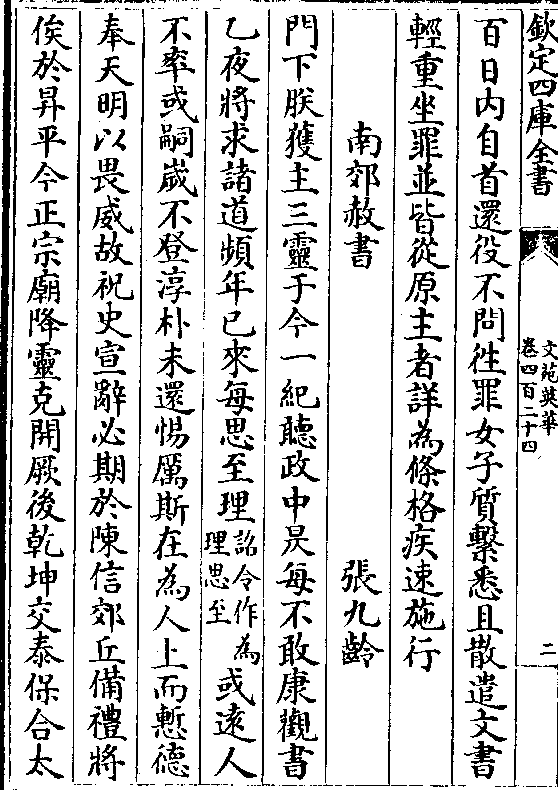 欽定四庫全書
文苑英華
卷四百二十四
二
百日内自首還役不問徃罪女子質繫悉且散遣文書
輕重坐罪並皆從原主者詳為條格疾速施行
南郊赦書 張九齡
門下朕獲主三靈于今一紀聽政中昃每不敢康觀書
乙夜將求諸道頻年已來每思至理詔令作為理思至或逺人
不率或嗣嵗不登淳朴未還惕厲斯在為人上而慙德
奉天明以畏威故祝史宣辭必期於陳信郊丘備禮將
俟於昇平今正宗廟降靈克開厥後乾坤交泰保合太